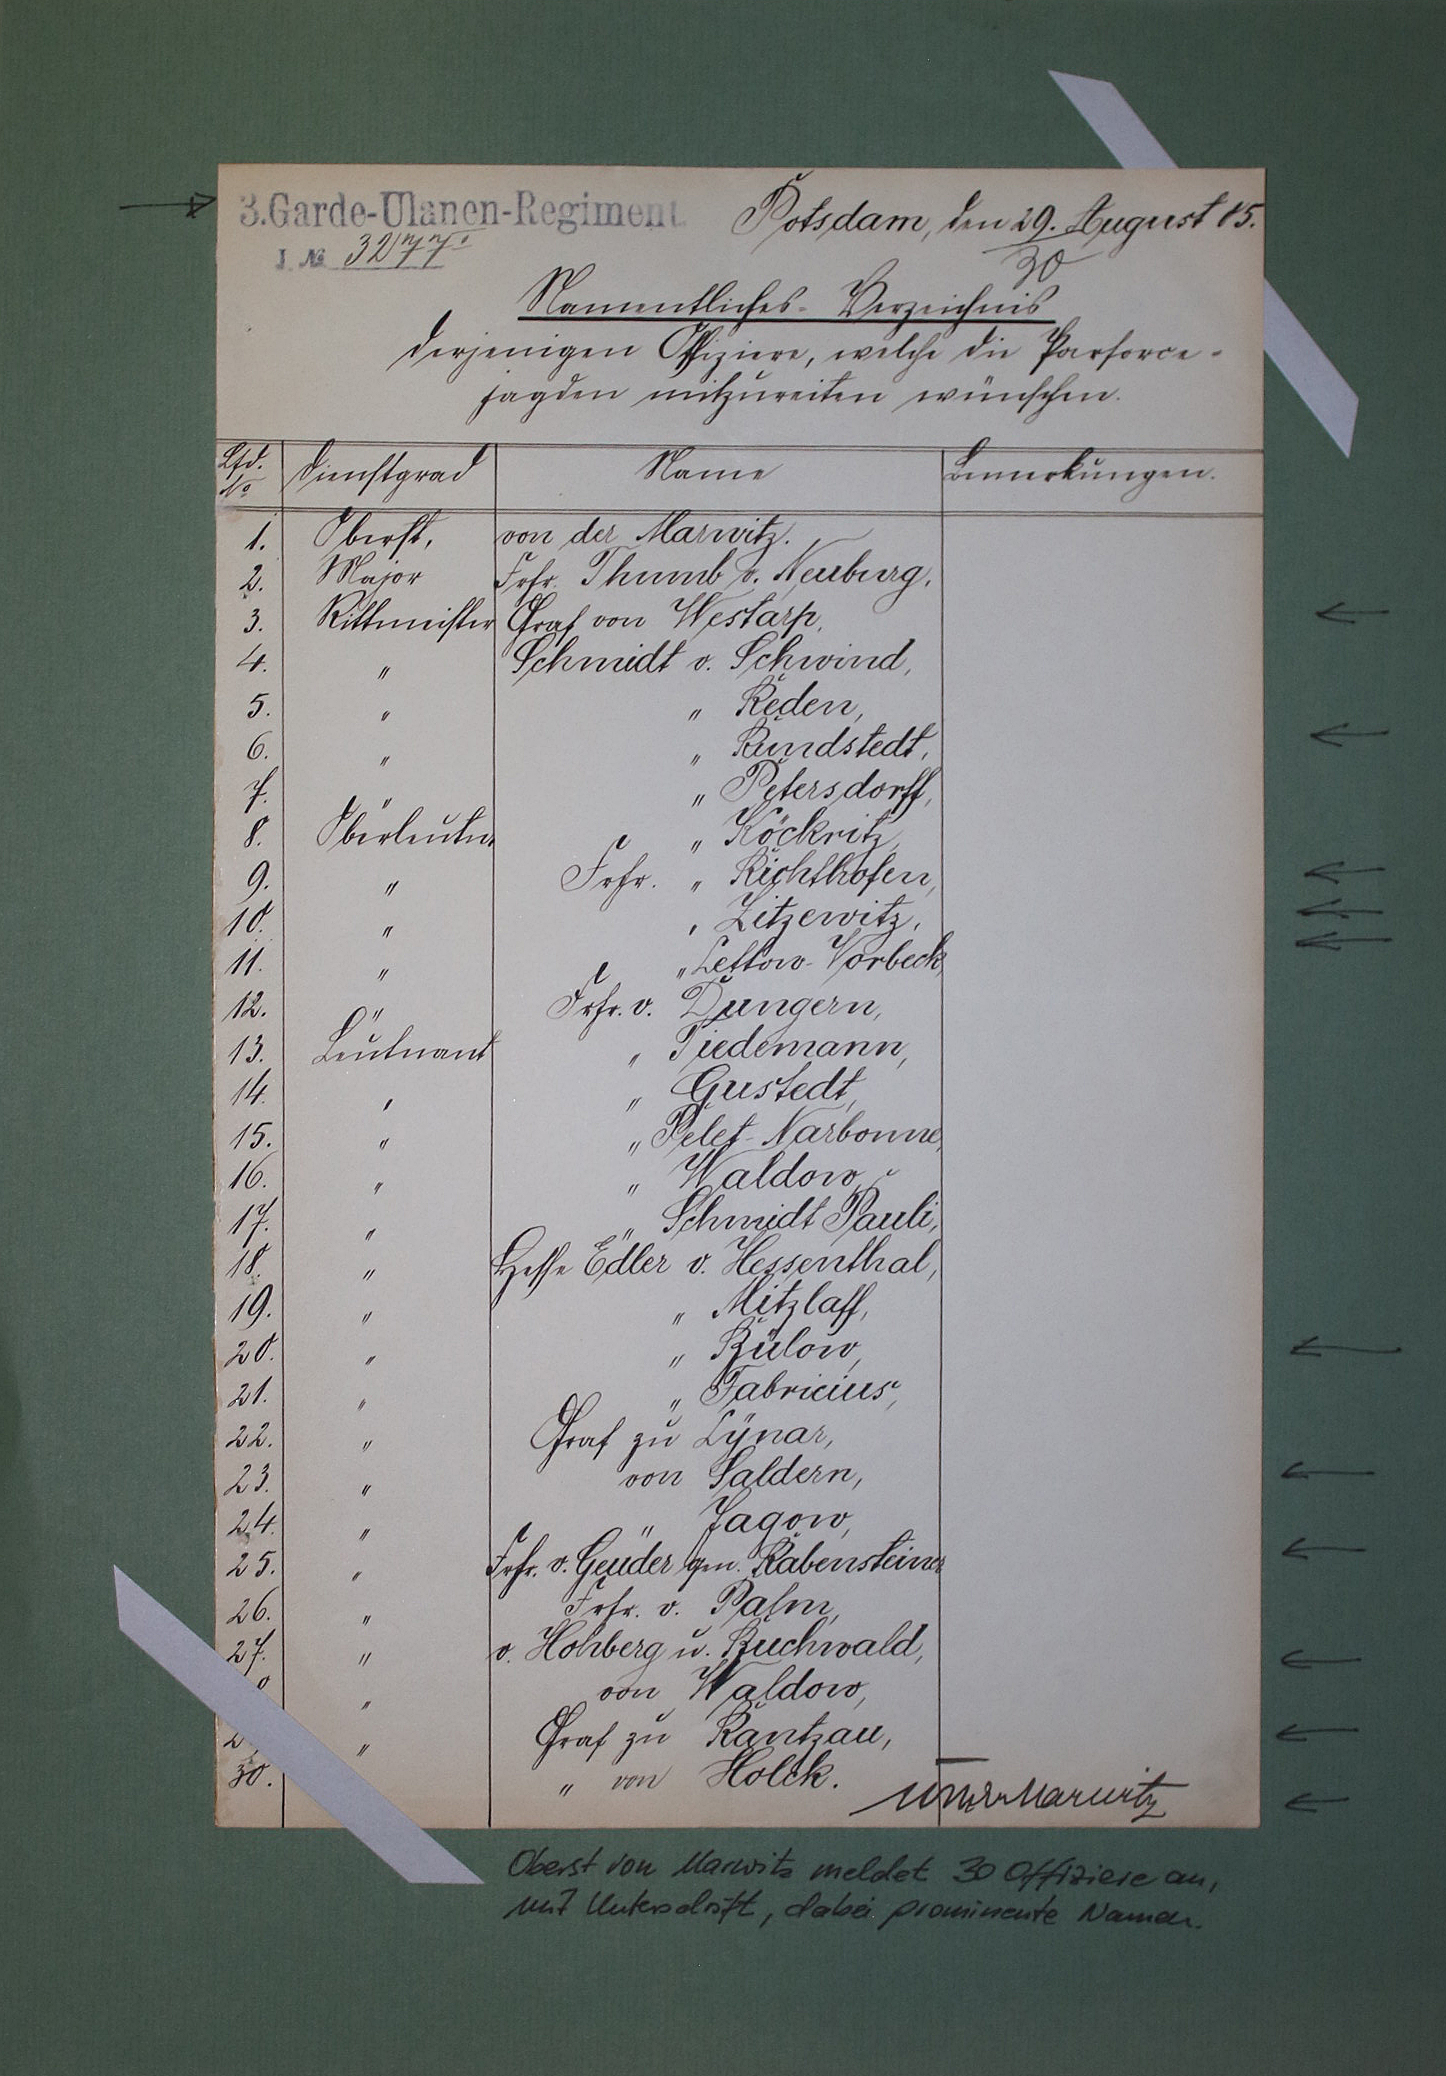 3.Garde-Ulanen-Regiment.
Potsdam, den 29. August 05.
J. № 3277
30
Namentliches-Verzeichnis
derjenigen Offiziere, welche die Parforce-
jagden mitzureiten wünschen.
Lfd. No Dienstgrad Name Bemerkungen.
1. Oberst, von der Marwitz.
2. Major Frhr. Thumb v. Neuburg,
3. Rittmeister Graf von Westarp,
4. " Schmidt v. Schwind,
5. " " Reden,
6. " " Rundstedt,
7. " " Petersdorff,
8. Oberleutn. " Köckritz,
9. " Frhr. " Richthofen,
10. " " Zitzewitz,
11. " " Lettow-Vorbeck,
12. " Frhr. v. Dungern,
13. Leutnant " Tiedemann,
14. " " Gustedt,
15. " " Pelet-Narbonne,
16. " " Waldow,
17. " " Schmidt Pauli,
18. " Hesse Edler v. Hessenthal,
19. " " Mitzlaff,
20. " " Bülow,
21. " " Fabricius,
22. " Graf zu Lynar,
23. " von Saldern,
24. " " Jagow,
25. " Frhr. v. Geuder gen. Rabensteiner
26. " Frhr. v. Palm,
27. " v. Hohberg u. Buchwald,
" von Waldow,
2 " Graf zu Rantzau,
30. " von Holck.
von der Marwitz
Oberst von Marwitz meldet 30 Offiziere an,
mit Unterschrift, dabei prominente Namen.